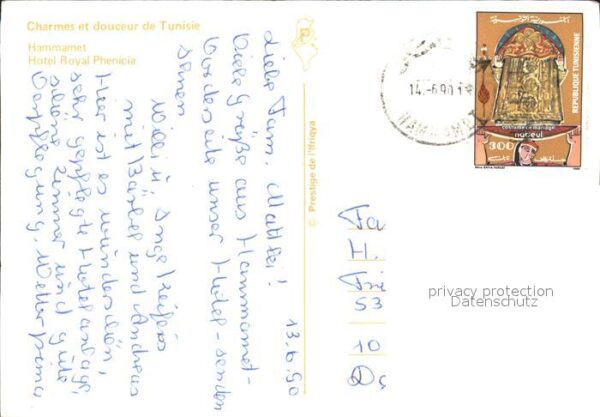 Charmes et douceur de Tunisie
Hammamet
Hotel Royal Phenicia
© Prestige de l'Ifriqya
13.6.90
Liebe Fam. Mattei!
Viele Grüße aus Hammamet -
Vorderseite unser Hotel - senden
Ihnen
Willi u. Inge
mit Bärbel und Andreas
Hier ist es wunderschön,
sehr gepflegte Hotelanlage,
schöne Zimmer und gute
Verpflegung, Wetter prima
Fa
H.
53
10
14.-6.90
HAMMAMET
REPUBLIQUE TUNISIENNE
costume de mariage
nabeul
300
privacy protection
Datenschutz